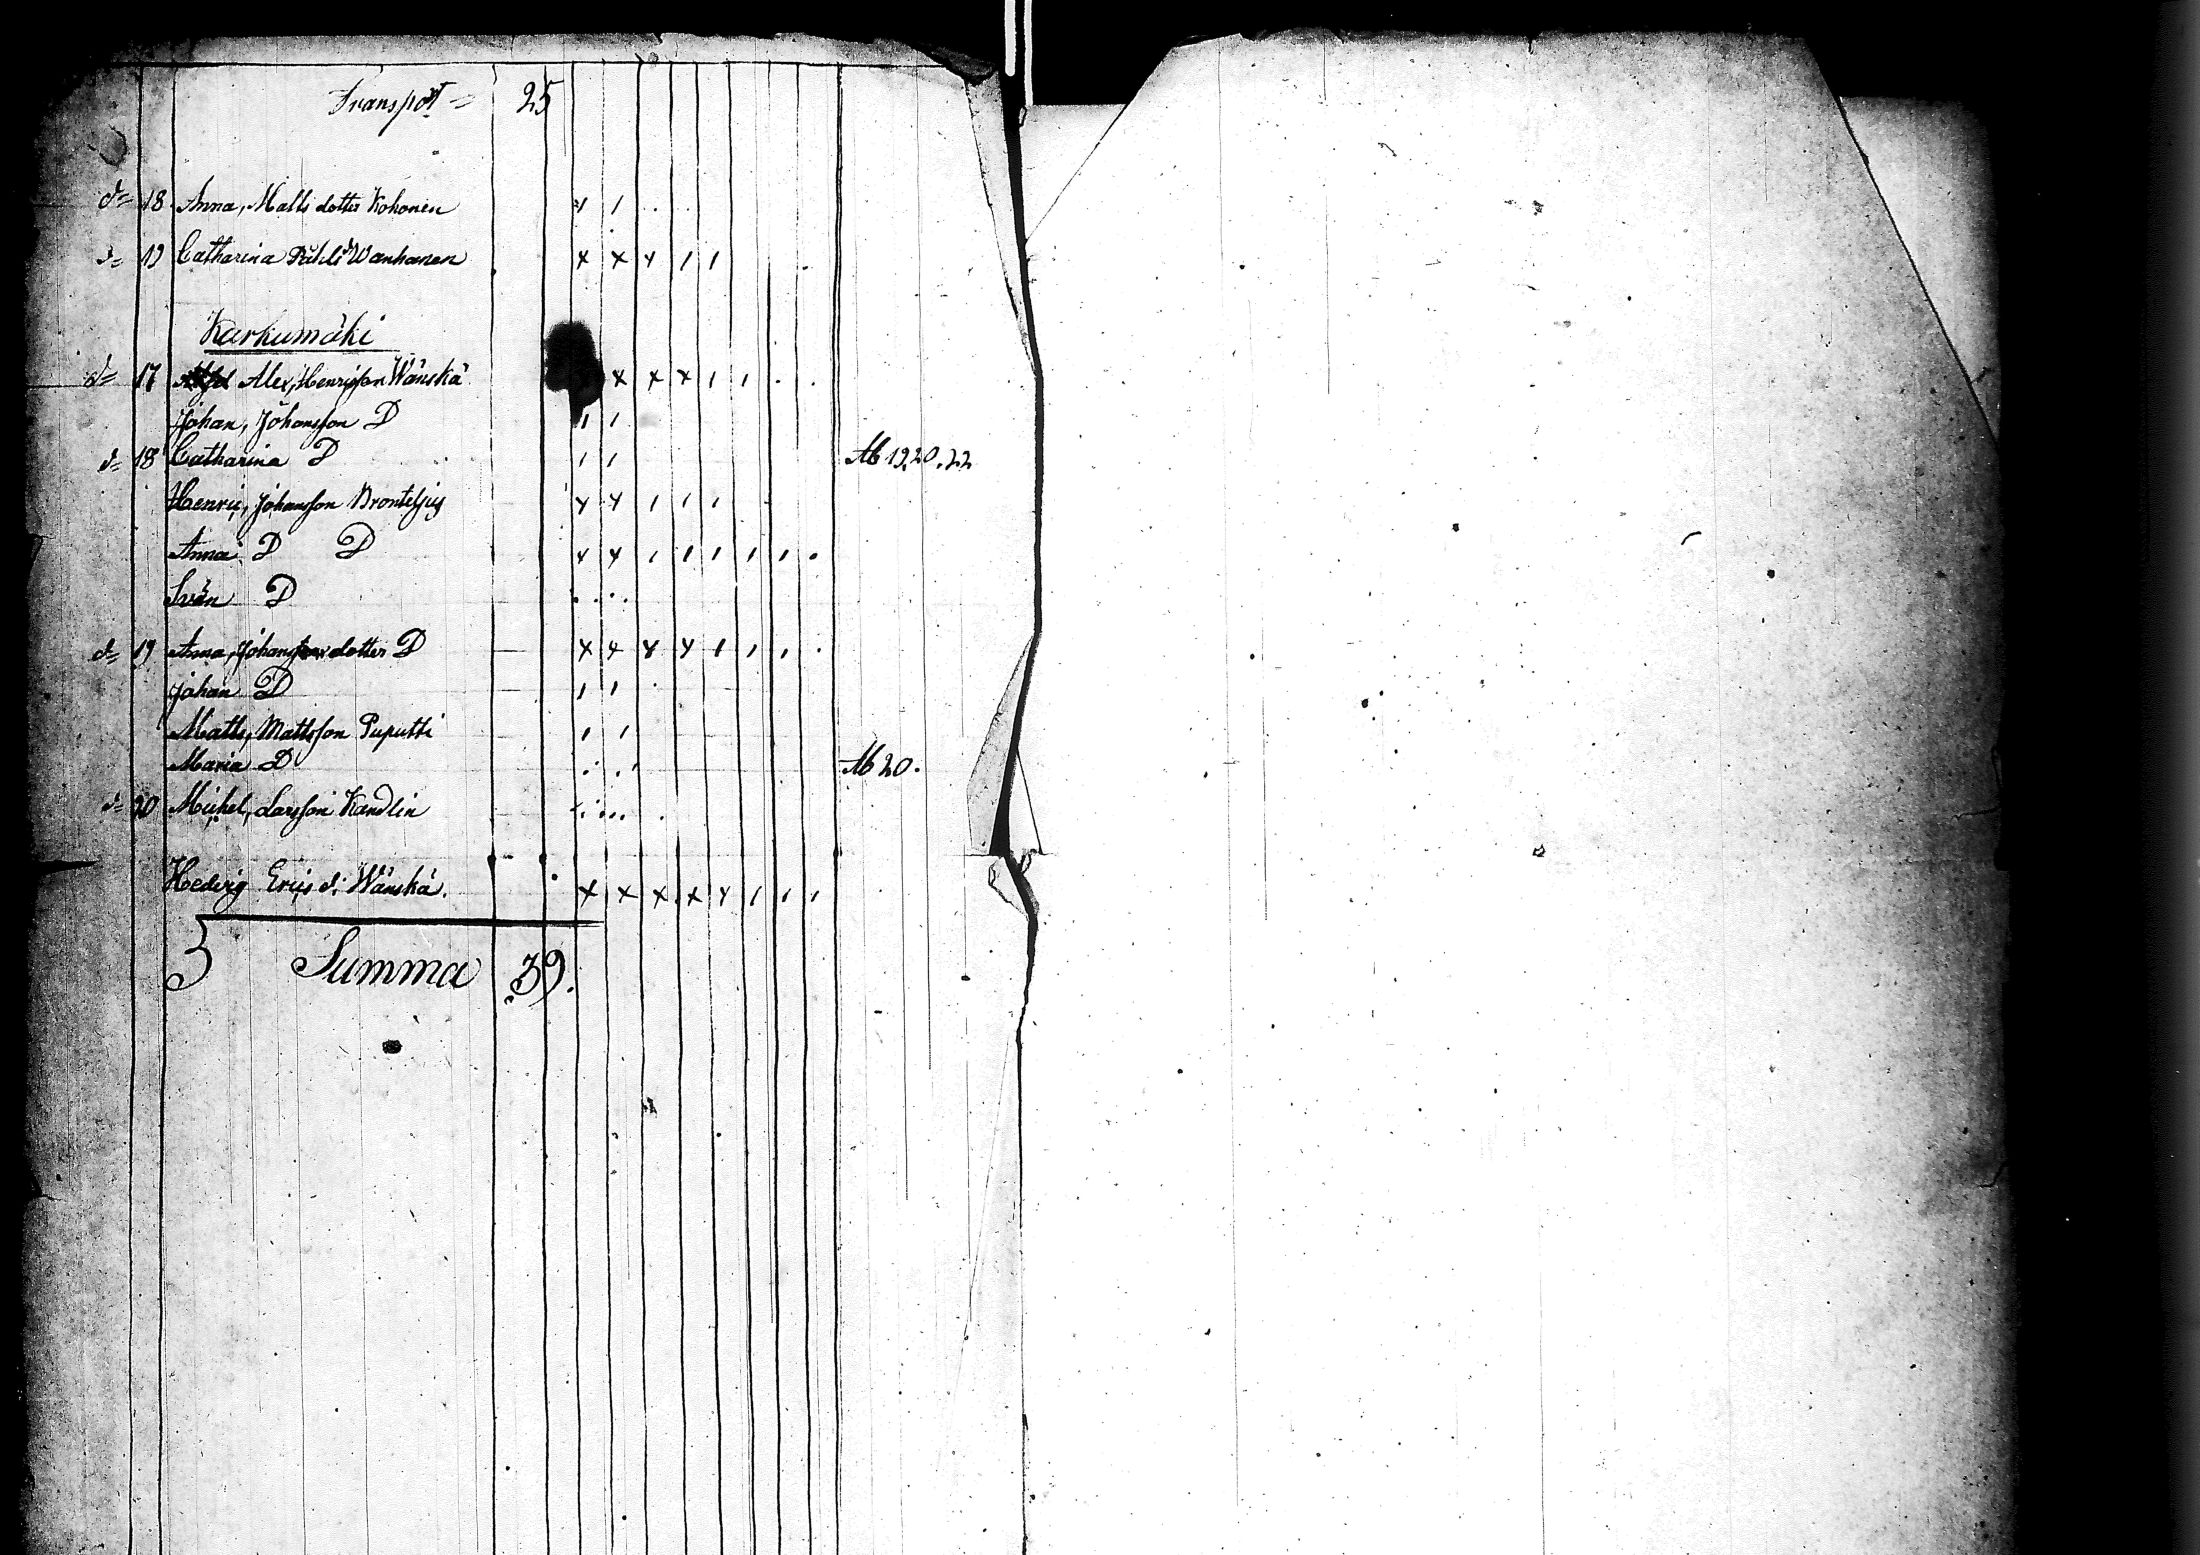 Transport = 25
d= 18 Anna, Matts dotter Kohonen
d= 19 Catharina Påhls d Wanhanen
Karkumäki
d= 17 Alex, Henrijsson Wänskä
Johan, Johansson D
d= 18 Catharina D Ab 19.20.22
Henric, Johansson Brontelius
Anna D D
Svän D
d= 19 Anna, Johans dotter D
Johan D
Matts, Mattsson Puputti
Maria D Ab 20.
d= 20 Michel, Larsson Kandlin
Hedvig Erics d: Wänskä.
Summa 39.